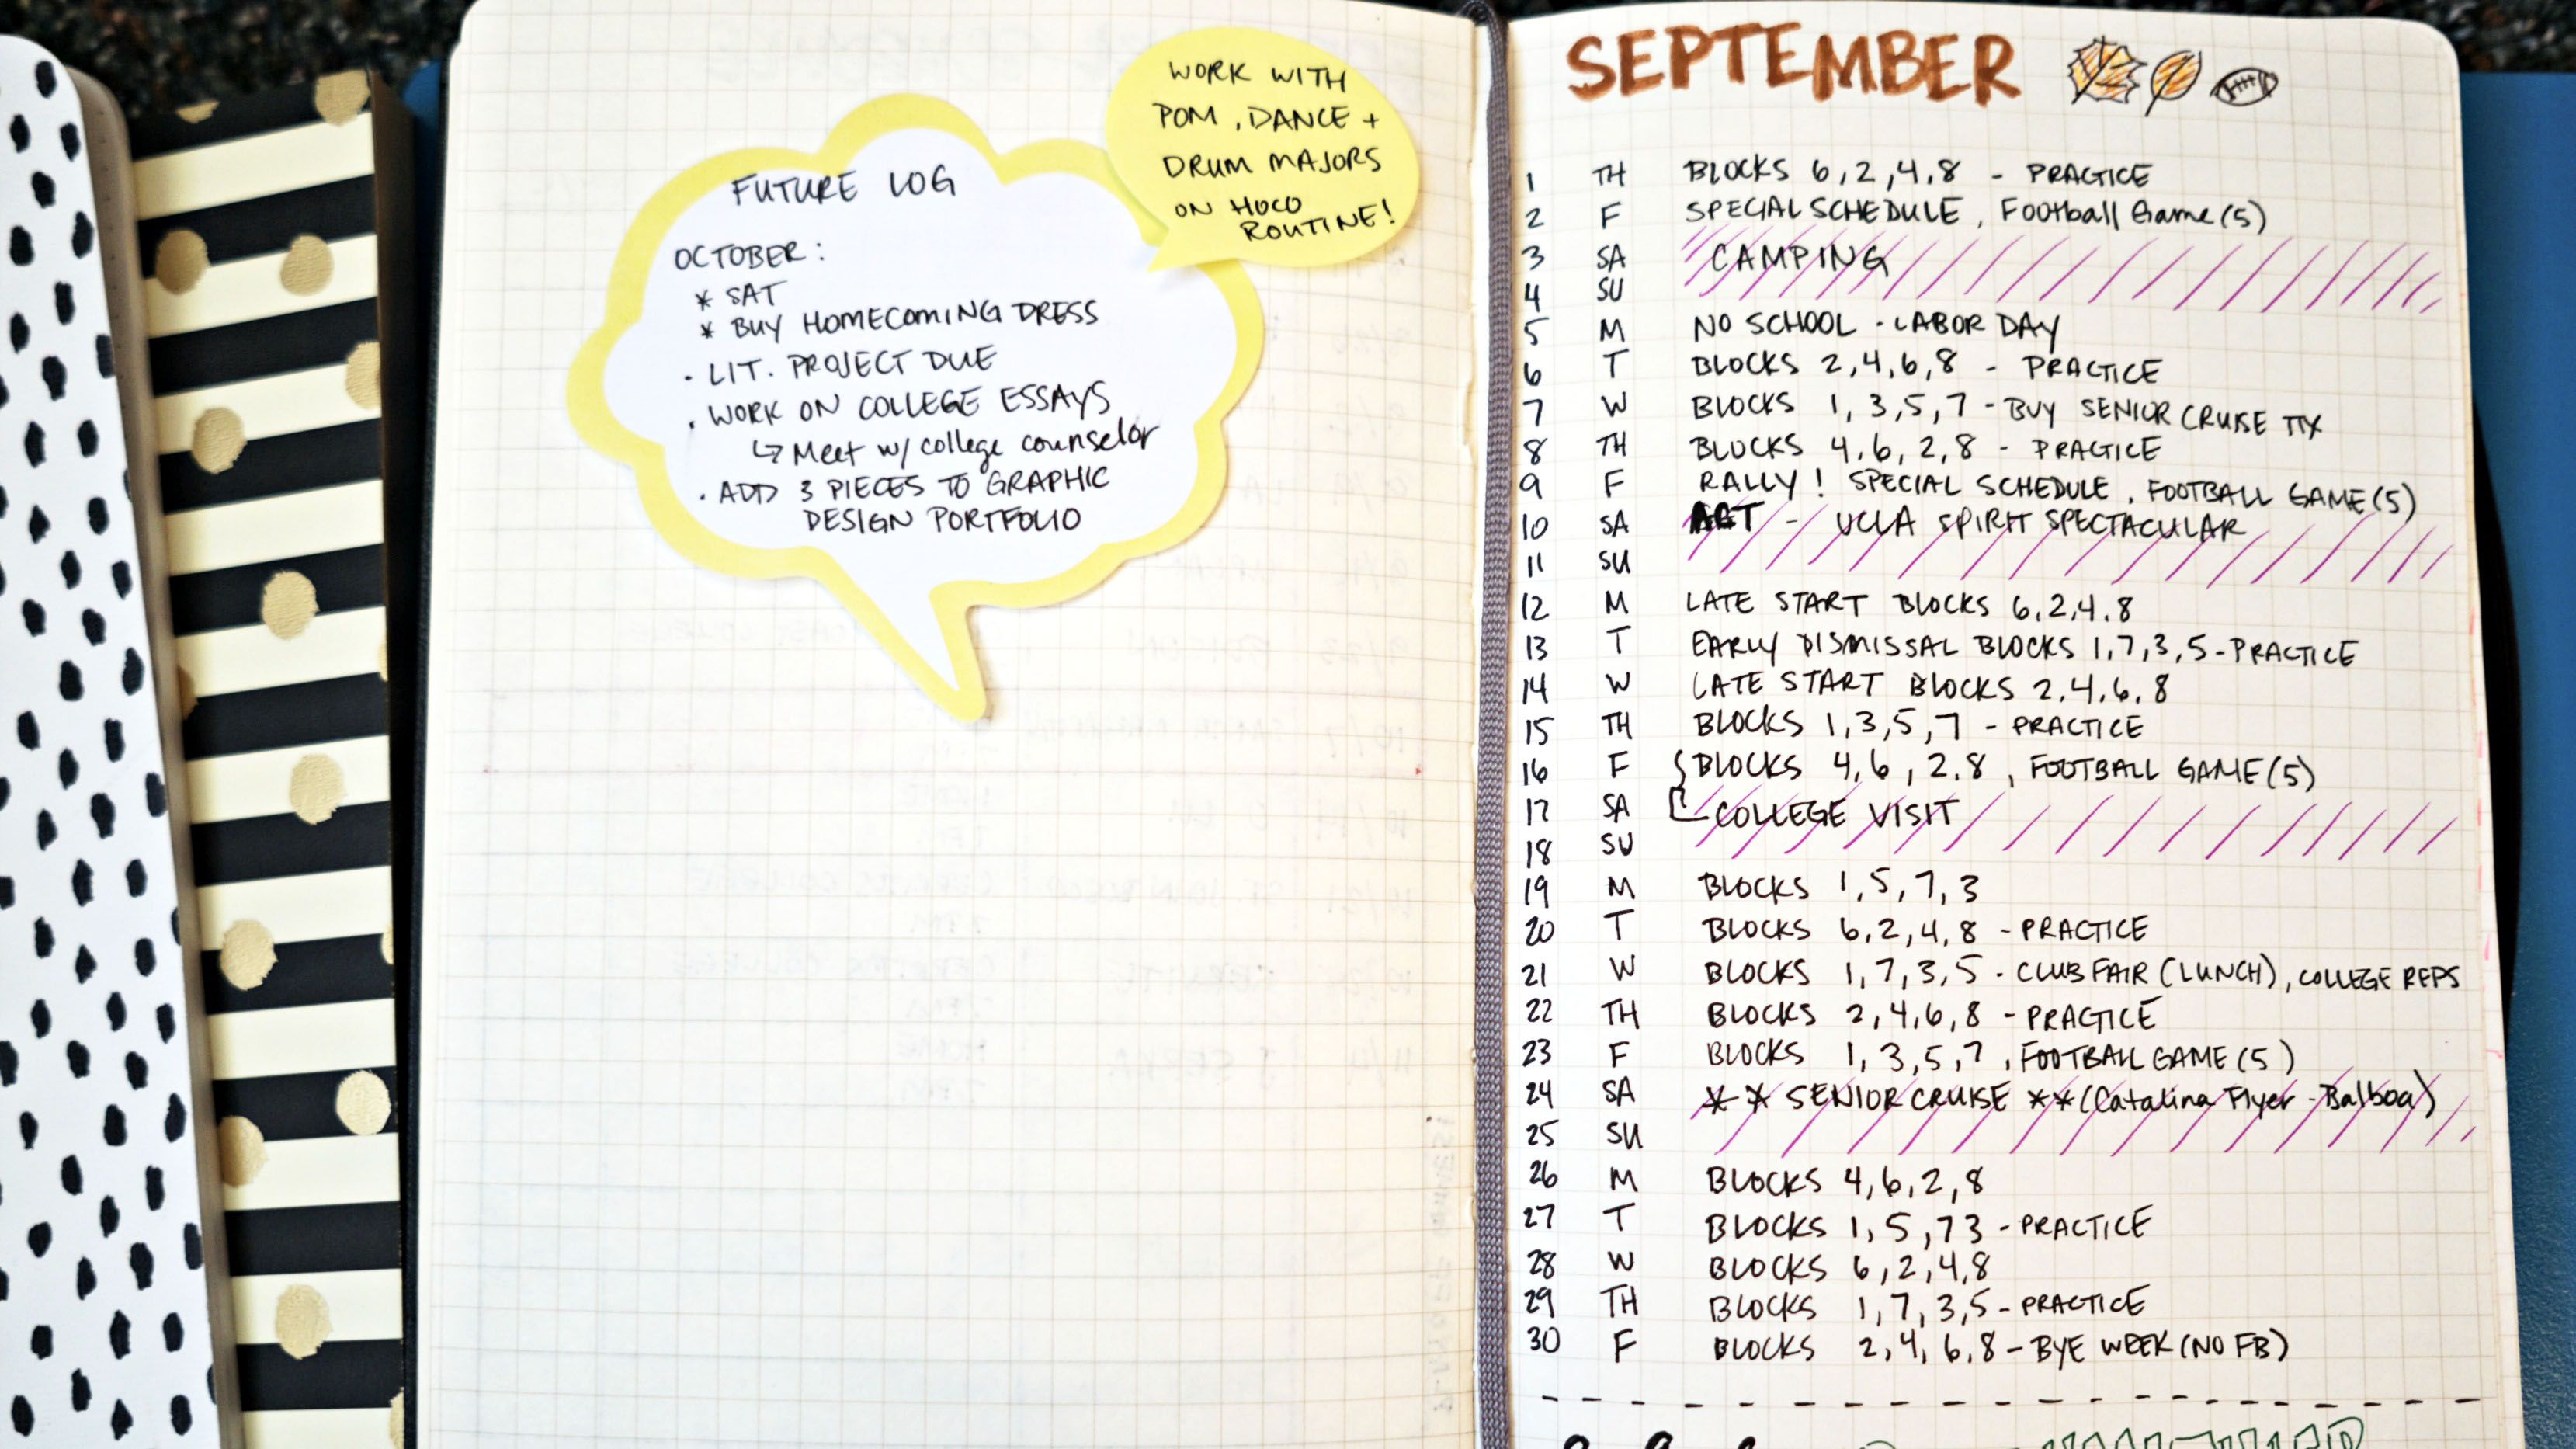 FUTURE LOG
OCTOBER :
* SAT
* BUY HOMECOMING DRESS
· LIT. PROJECT DUE
· WORK ON COLLEGE ESSAYS
↳ Meet w/ college counselor
· ADD 3 PIECES TO GRAPHIC
DESIGN PORTFOLIO
WORK WITH
POM , DANCE +
DRUM MAJORS
ON HOCO
ROUTINE!
SEPTEMBER
1 TH BLOCKS 6,2,4,8 - PRACTICE
2 F SPECIAL SCHEDULE , Football Game (5)
3 SA CAMPING
4 SU
5 M NO SCHOOL - LABOR DAY
6 T BLOCKS 2,4,6,8 - PRACTICE
7 W BLOCKS 1,3,5,7 - BUY SENIOR CRUISE TIX
8 TH BLOCKS 4,6,2,8 - PRACTICE
9 F RALLY! SPECIAL SCHEDULE , FOOTBALL GAME (5)
10 SA ACT - UCLA SPIRIT SPECTACULAR
11 SU
12 M LATE START BLOCKS 6,2,4,8
13 T EARLY DISMISSAL BLOCKS 1,7,3,5 - PRACTICE
14 W LATE START BLOCKS 2,4,6,8
15 TH BLOCKS 1,3,5,7 - PRACTICE
16 F BLOCKS 4,6,2,8 , FOOTBALL GAME (5)
17 SA COLLEGE VISIT
18 SU
19 M BLOCKS 1,5,7,3
20 T BLOCKS 6,2,4,8 - PRACTICE
21 W BLOCKS 1,7,3,5 - CLUB FAIR (LUNCH), COLLEGE REPS
22 TH BLOCKS 2,4,6,8 - PRACTICE
23 F BLOCKS 1,3,5,7 , FOOTBALL GAME (5)
24 SA ** SENIOR CRUISE ** (Catalina Flyer - Balboa)
25 SU
26 M BLOCKS 4,6,2,8
27 T BLOCKS 1,5,73 - PRACTICE
28 W BLOCKS 6,2,4,8
29 TH BLOCKS 1,7,3,5 - PRACTICE
30 F BLOCKS 2,4,6,8 - BYE WEEK (NO FB)